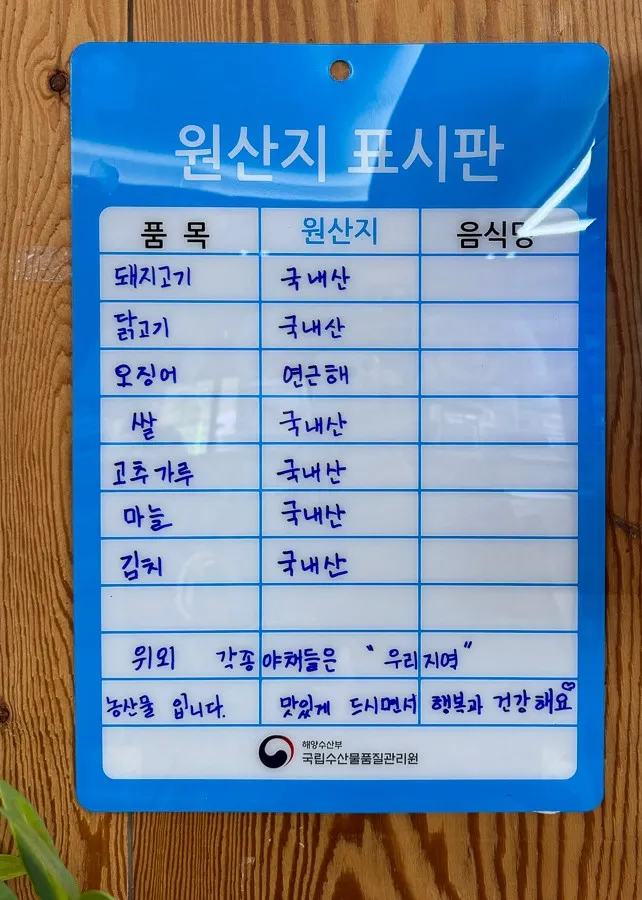 원산지 표시판
품 목 원산지 음식명
돼지고기 국내산
닭고기 국내산
오징어 연근해
쌀 국내산
고추가루 국내산
마늘 국내산
김치 국내산
위외 각종 야채들은 "우리지역"
농산물 입니다. 맛있게 드시면서 행복과 건강해요♡
해양수산부
국립수산물품질관리원